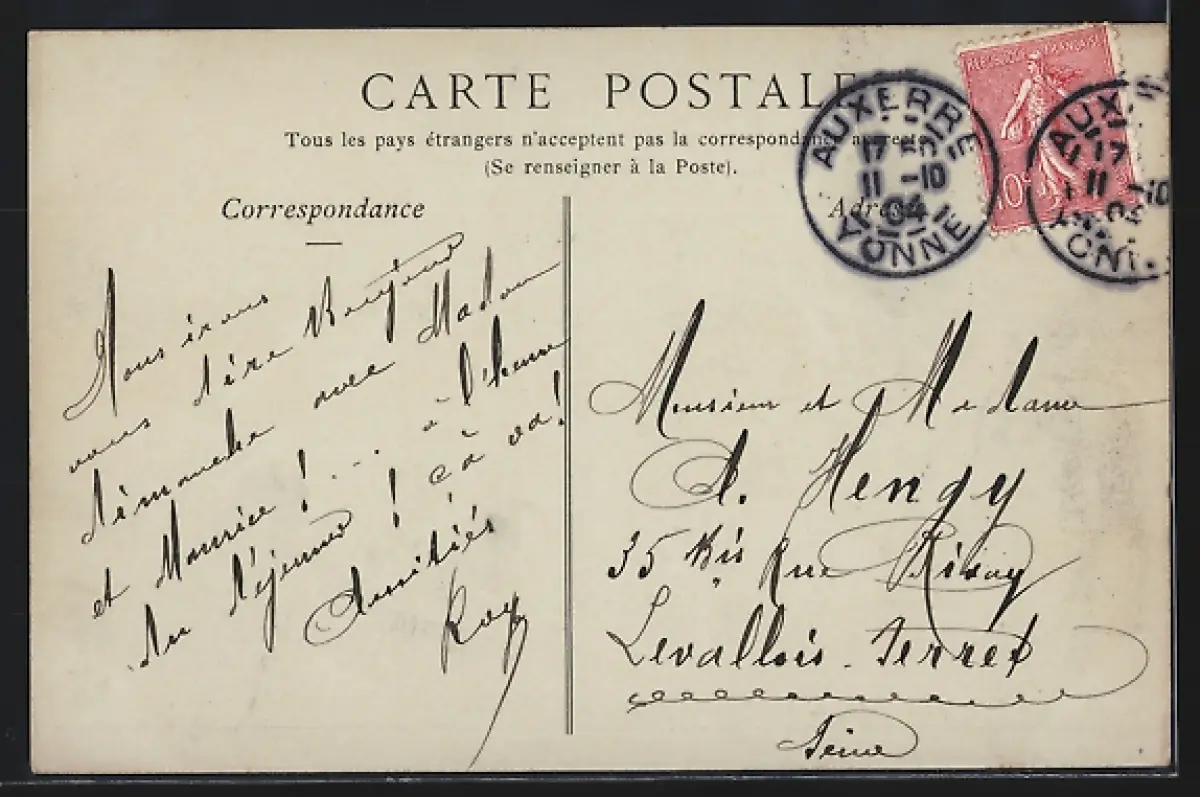 CARTE POSTALE
Tous les pays étrangers n'acceptent pas la correspondance au recto
(Se renseigner à la Poste).
Correspondance
Adresse
REPUBLIQUE FRANÇAISE
10c
AUXERRE
17
11 -10
04
YONNE
AUX
17
11 10
04
YONNE
Nous irons
vous dire Bonjour
dimanche avec Madame
et Maurice !... à l'heure
du déjeuner ! ça va !
Amitiés
Roy
Monsieur et Madame
A. Hengy
35 bis Rue Rivay
Levallois-Perret
Seine